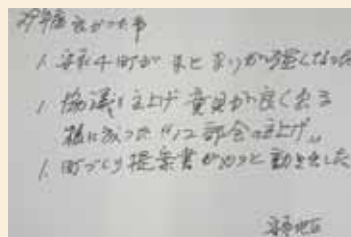 29年度良かった事
1. 四町がまとまりが強くなった
1. 協議し上げ意見が良く出る
様になった "12部会の立上げ"
1. 町づくり提案書がやっと動き出した
地区